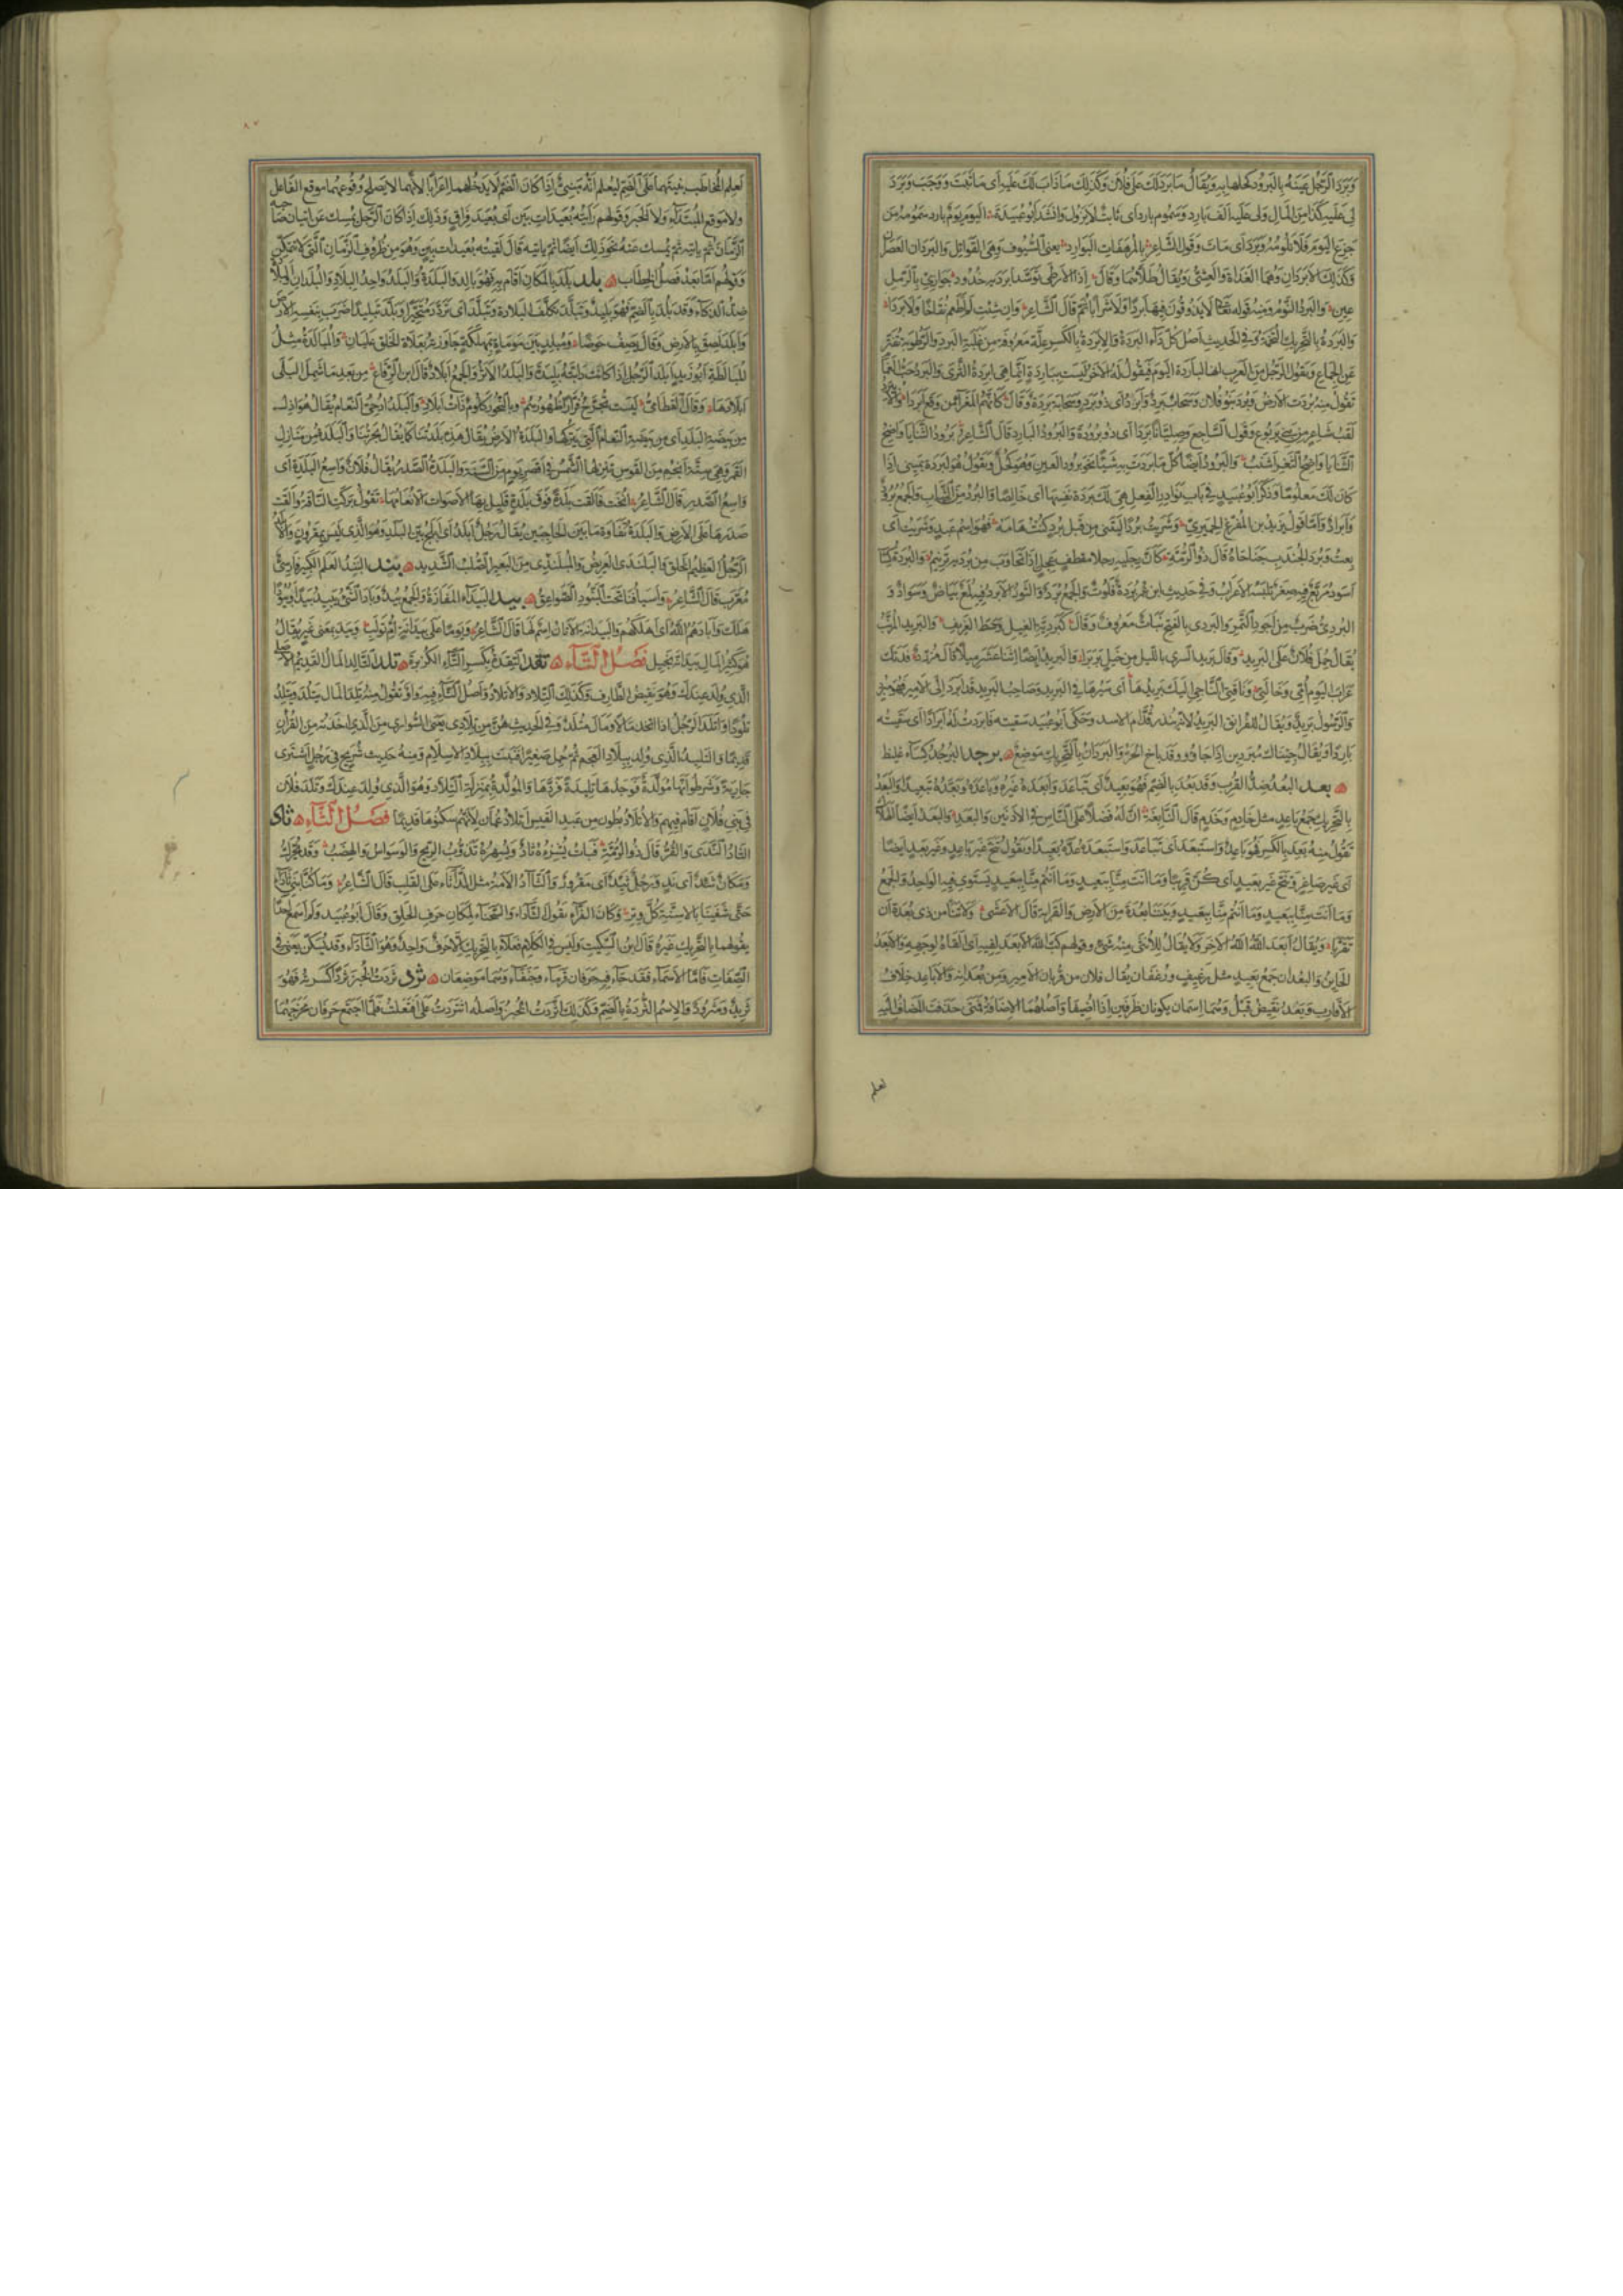 وَبَرَدَ الرَّجُلُ عَيْنَهُ بِالبَرُودِ كحلها به وَيُقَالُ مَا بَرَدَ لَكَ عَلَى فُلَانٍ وَكَذَلِكَ مَا ذَابَ لَكَ عَلَيْهِ أى مَا ثَبَتَ وَوَجَبَ وَبَرَدَ
لى عَلَيْهِ كَذَا مِنَ المَالِ وَلى عَلَيْهِ أَلْفٌ بَارِدٌ وَسَمُومٌ بارد أى ثابتٌ لا يَزُول وَانْشَدَ أَبُو عُبَيْدَةَ اليَومُ يَومٌ بارد سَمُومُهُ مَن
جَزِعَ اليَومَ فَلَا تَلُومُهُ وَبَرَدَ أى مَاتَ وَقَول الشَّاعِرِ بِالمُرهَفَاتِ البَوارِدِ يعنى السُّيُوف وَهِىَ القَوَاتِل وَالبَردَان العَصْرَان
وَكَذَلِكَ الأَبْرَدَانِ وَهُمَا الغَدَاةُ وَالعَشِىُّ وَيُقَالُ ظِلَّاهُمَا وَقَالَ إِذَا الأَرْطَى تَوَسَّدَ أَبْرَدَيْهِ خُدُودُ جَوَازِئٍ بِالرَّمْلِ
عِينِ وَالبَرْدُ النَّوْمُ وَمِنْهُ قَوْلُهُ تَعَالَى لَا يَذُوقُونَ فِيهَا بَرْدًا وَلَا شَرَابًا قَالَ الشَّاعِرُ وَإِن شِئْتِ لَم أَطْعَمْ نُقَاخًا وَلَا بَرْدَا
وَالبَرَدَةُ بِالتَّحْرِيكِ التُّخَمَةُ وَفِى الحَدِيثِ أَصْلُ كُلِّ دَاءٍ البَرَدَةُ وَالإِبْرِدَةُ بِالكَسْرِ عِلَّةٌ مَعْرُوفَةٌ مِن غَلَبَةِ البَرْدِ وَالرُّطُوبَةِ تُفَتِّرُ
عَنِ الجِمَاعِ وَيَقُولُ الرَّجُلُ مِنَ العَرَبِ انها لباردة اليَوْمَ فَيَقُولُ لَهُ الآخَرُ لَيْسَت بِبَارِدَةٍ إِنَّمَا هِىَ إِبْرِدَةُ الثَّرَى وَالبَرَدُ حَبُّ الغَمَامِ
تَقُولُ مِنْهُ بُرِدَتِ الأَرْضُ وَبُرِدَ بَنُو فُلَان وَسَحَابٌ بَرِدٌ وَأَبْرَدُ أى ذُو بَرَدٍ وَسَحَابَةٌ بَرِدَةٌ وَقَالَ كَأَنَّهُمُ المَعْزَاءُ مِن وَقْعِ أَبْرَدَا وَالأَبَيرِدُ
لَقَبُ شَاعِرٍ مِن بَنِى يَرْبُوع وَقَول السَّاجِع وَصِلِّيَانًا بَرِدَا أى ذُو بُرُودَةٍ وَالبَرُودُ البَارِد قَالَ الشَّاعِرُ بَرُودُ الثَّنَايَا وَاضِحُ
الثَّنَايَا وَاضِحُ الثَّغْرِ أَشْنَبُ وَالبَرُودُ أَيْضًا كُلُّ مَا بَرَدْتَ بِهِ شَيْئًا نَحْوَ بَرُودِ العَيْنِ وَهُوَ كُحْلٌ وَيَقُولُ هُوَ لِبَرْدَةِ يَمِينِى إِذَا
كَانَ لَكَ مَعْلُومًا وَذَكَرَ أَبُو عُبَيْدٍ فى بَابِ نَوَادِرِ الفِعْلِ هِىَ لَكَ بَرْدَةَ نَفْسِهَا أى خَالِصًا وَالبُرْدُ مِنَ الثِّيَابِ وَالجَمْعُ بُرُودٌ
وَأَبْرَادٌ وَأَمَّا قَوْلُ يَزِيدَ بْنِ المُفَرِّغِ الحِمْيَرِىِّ وَشَرَيْتُ بُرْدًا لَيْتَنِى مِن قَبْلِ بُرْدٍ كُنْتُ هَامَهْ فَهُوَ اسْمُ عَبْدٍ وَشَرَيْتُ أى
بِعْتُ وَبُرْدَا الجُنْدَبِ جَنَاحَاهُ قَالَ ذُو الرُّمَّةِ كَأَنَّ رِجْلَيْهِ رِجْلَا مُقْطِفٍ عَجِلٍ إِذَا تَجَاوَبَ مِن بُرْدَيْهِ تَرْنِيمُ وَالبُرْدَةُ كِسَاءٌ
أَسْوَدُ مُرَبَّعٌ فِيهِ صِغَرٌ تَلْبَسُهُ الأَعْرَابُ وَفِى حَدِيثِ ابْنِ عُمَرَ بُرْدَةٌ فَلُوتٌ وَالجَمْعُ بُرَدٌ وَالثَّوْرُ الأَبْرَدُ فِيهِ لُمَعُ بَيَاضٍ وَسَوَادٍ وَ
البُرْدِىُّ ضَرْبٌ مِن أَجْوَدِ التَّمْرِ وَالبَرْدِى بِالفَتْحِ نَبَاتٌ مَعْرُوفٌ وَقَالَ كَبَرْدِيَّةِ الغِيلِ وَسْطَ الغَرِيفِ وَالبَرِيدُ المُرَتَّبُ
يُقَالُ حُمِلَ فُلَانٌ عَلَى البَرِيدِ وَقَالَ بَرِيدَ السُّرَى بِاللَّيْلِ مِن خَيْلِ بَرْبَرَا وَالبَرِيدُ أَيْضًا اثْنَا عَشَرَ مِيلًا قَالَ مُزَرِّدٌ فَدَتْكَ
عَرَابَ اليَوْمَ أُمِّى وَخَالَتِى وَنَاقَتِىَ النَّاجِى إِلَيْكَ بَرِيدُهَا أى سَيْرُهَا فِى البَرِيدِ وَصَاحِبُ البَرِيدِ قَد أَبْرَدَ إِلَى الأَمِيرِ فَهُوَ مُبْرِدٌ
وَالرَّسُولُ بَرِيدٌ وَيُقَالُ لِلْفُرَانِقِ البَرِيدُ لِأَنَّهُ يُنْذِرُ قُدَّامَ الأَسَدِ وَحَكَى أَبُو عُبَيْد سَقَيْتُه فَأَبْرَدْتُ لَهُ إِبْرَادًا أى سَقَيْتُه
بَارِدًا وَيُقَالُ جِئْنَاكَ مُبْرِدِينَ إِذَا جَاؤُوا وَقَد بَاخَ الحَرُّ وَالبَرَدَانُ بِالتَّحْرِيكِ مَوْضِعٌ برجد البُرْجُدُ كِسَاءٌ غَلِيظٌ
بعد البُعْدُ ضِدُّ القُرْبِ وَقَد بَعُدَ بِالضَّمِّ فَهُوَ بَعِيدٌ أى تَبَاعَدَ وَأَبْعَدَهُ غَيْرُهُ وَبَاعَدَهُ وَبَعَّدَهُ تَبْعِيدًا وَالبَعَدُ
بِالتَّحْرِيكِ جَمْعُ بَاعِدٍ مثل خَادِمٍ وَخَدَمٍ قَالَ النَّابِغَةُ إِنَّ لَهُ فَضْلًا عَلَى النَّاسِ فِى الأَدْنَيْنِ وَالبَعَدِ وَالبَعَدُ أَيْضًا الهَلَاكُ
تَقُولُ مِنْهُ بَعِدَ بِالكَسْرِ فَهُوَ بَاعِدٌ وَاسْتَبْعَدَ أى تَبَاعَدَ وَاسْتَبْعَدَهُ عَدَّهُ بَعِيدًا وَتَقُولُ تَنَحَّ غَيْرَ بَاعِدٍ وَغَيْرَ بَعَدٍ أَيْضًا
أى غَيْرَ صَاغِرٍ وَتَنَحَّ غَيْرَ بَعِيدٍ أى كُنْ قَرِيبًا وَمَا أَنْتَ مِنَّا بِبَعِيدٍ وَمَا أَنْتُم مِنَّا بِبَعِيدٍ يَسْتَوِى فِيهِ الوَاحِدُ وَالجَمْعُ
وَمَا أَنْتَ مِنَّا بِبَعَدٍ وَمَا أَنْتُم مِنَّا بِبَعَدٍ وَبَيْنَنَا بُعْدَةٌ مِنَ الأَرْضِ وَالقَرَابَةِ قَالَ الأَعْشَى وَلَا تَنْأَ مِن ذِى بُعْدَةٍ أَن
تَقَرَّبَا وَيُقَالُ أَبْعَدَ اللَّهُ الآخَرَ وَلَا يُقَالُ لِلْأُنْثَى مِنْهُ شَىْءٌ وَقَوْلهم كَبَّ اللَّهُ الأَبْعَدَ لِفِيهِ أى أَلْقَاهُ لِوَجْهِهِ وَالأَبْعَدُ
الخَائِنُ وَالبُعْدَانُ جَمْعُ بَعِيدٍ مثل رَغِيفٍ وَرُغْفَانٍ يُقَال فُلَان مِن قُرْبَان الأَمِيرِ وَمِن بُعْدَانِهِ وَالأَبَاعِد خِلَافُ
الأَقَارِب وَبَعْدُ نَقِيضُ قَبْلُ وَهُمَا اسْمَان يَكُونَان ظَرْفَيْنِ إِذَا أُضِيفَا وَأَصْلُهُمَا الإِضَافَةُ فَمَتَى حَذَفْتَ المُضَافَ إِلَيْهِ
لعلم
لِعِلْمِ المُخَاطَبِ بَنَيْتَهُمَا عَلَى الضَّمِّ لِيُعْلَمَ أَنَّهُ مَبْنِىٌّ إِذَا كَانَ الضَّمُّ لَا يَدْخُلُهُمَا إِعْرَابًا لِأَنَّهُمَا لَا يَصْلُحُ وُقُوعُهُمَا مَوْقِعَ الفَاعِلِ
وَلَا مَوْقِعَ المُبْتَدَاءِ وَلَا الخَبَرِ وَقَوْلهم رَأَيْتُهُ بُعَيْدَاتِ بَيْنٍ أى بُعَيْدَ فِرَاقٍ وَذَلِكَ إِذَا كَانَ الرَّجُلُ يُمْسِكُ عَن إِتْيَانِ صَاحِبِهِ
الزَّمَانَ ثُمَّ يَأْتِيهِ ثُمَّ يُمْسِكُ عَنْهُ نَحْوَ ذَلِكَ أَيْضًا ثُمَّ يَأْتِيهِ قَالَ لَقِيتُهُ بُعَيْدَاتِ بَيْنٍ وَهُوَ مِن ظُرُوفِ الزَّمَانِ الَّتِى لَا تَتَمَكَّنُ
وَقَوْلُهُم أَمَّا بَعْدُ فَصْلُ الخِطَاب بلد بَلَدَ بِالمَكَانِ أَقَامَ بِهِ فَهُوَ بَالِد وَالبَلْدَةُ وَالبَلَدُ وَاحِدُ البِلَادِ وَالبُلْدَانِ وَالبَلَادَةُ
ضِدُّ الذَّكَاءِ وَقَد بَلُدَ بِالضَّمِّ فَهُوَ بَلِيدٌ وَتَبَلَّدَ تَكَلَّفَ البَلَادَةَ وَتَبَلَّدَ أى تَرَدَّدَ مُتَحَيِّرًا وَبَلَّدَ تَبْلِيدًا ضَرَبَ بِنَفْسِهِ الأَرْضَ
وَأَبْلَدَ لَصِقَ بِالأَرْضِ وَقَالَ يَصِفُ حَوْضًا وَمُبْلِدٍ بَيْنَ مَوْمَاةٍ بِمَهْلَكَةٍ جَاوَزْتُهُ بِعَلَاةِ الخَلْقِ عِلْيَانِ وَالمُبَالَدَةُ مِثْلُ
المُبَالَطَةِ أَبُو زَيْدٍ أَبْلَدَ الرَّجُلُ إِذَا كَانَتْ دَابَّتُهُ بَلِيدَةً وَالبَلَدُ الأَثَرُ وَالجَمْعُ أَبْلَادٌ قَالَ ابن الرِّقَاعِ مِن بَعْدِ مَا شَمِلَ البِلَى
أَبْلَادَهَا وَقَالَ القُطَامِىُّ لَيْسَت تُجَرَّحُ فُرَّارًا ظُهُورُهُمُ وَبِالنُّحُورِ كُلُومٌ ذَاتُ أَبْلَادِ وَالبَلَدُ أُدْحِىُّ النَّعَامِ يُقَالُ هُوَ أَذَلُّ
مِن بَيْضَةِ البَلَدِ أى مِن بَيْضَةِ النَّعَامِ الَّتِى يَتْرُكُهَا وَالبَلْدَةُ الأَرْضُ يُقَالُ هَذِهِ بَلْدَتُنَا كَمَا يُقَالُ بَحْرَتُنَا وَالبَلْدَةُ مِن مَنَازِلِ
القَمَرِ وَهِىَ سِتَّةُ أَنْجُمٍ مِنَ القَوْسِ تَنْزِلُهَا الشَّمْسُ فِى أَقْصَرِ يَوْمٍ مِنَ السَّنَةِ وَالبَلْدَةُ الصَّدْرُ يُقَالُ فُلَانٌ وَاسِعُ البَلْدَةِ أى
وَاسِعُ الصَّدْرِ قَالَ الشَّاعِرُ أُنِيخَت فَأَلْقَت بَلْدَةً فَوْقَ بَلْدَةٍ قَلِيلٍ بِهَا الأَصْوَاتُ إِلَّا بُغَامُهَا يَقُولُ بَرَكَتِ النَّاقَةُ وَأَلْقَت
صَدْرَهَا عَلَى الأَرْضِ وَالبَلْدَةُ نَقَاوَةُ مَا بَيْنَ الحَاجِبَيْنِ يُقَالُ رَجُلٌ أَبْلَدُ أى أَبْلَجُ بَيِّنُ البَلَدِ وَهُوَ الَّذِى لَيْسَ بِمَقْرُونٍ وَالأَبْلَدُ
الرَّجُلُ العَظِيمُ الخَلْقِ وَالبَلَنْدَى العَرِيضُ وَالمُبْلَنْدِى مِنَ البَعِيرِ الصُّلْبُ الشَّدِيد بند البَنْدُ العَلَمُ الكَبِيرُ فَارِسِىٌّ
مُعَرَّبٌ قَالَ الشَّاعِرُ وَأَسْيَافُنَا تَحْتَ البُنُودِ الصَّوَاعِقُ بيد البَيْدَاءُ المَفَازَةُ وَالجَمْعُ بِيدٌ وَبَادَ الشَّىْءُ يَبِيدُ بَيْدًا وَبُيُودًا
هَلَكَ وَأَبَادَهُمُ اللَّهُ أى أَهْلَكَهُم وَالبَيْدَانَةُ الأَتَانُ اسْمٌ لَهَا قَالَ الشَّاعِرُ وَيَوْمًا عَلَى بَيْدَانَةٍ أُمِّ تَوْلَبِ وَبَيْدَ بِمَعْنَى غَيْرَ يُقَالُ
هُوَ كَثِيرُ المَالِ بَيْدَ أَنَّهُ بَخِيل فَصْلُ التَّاءِ تقد التِّقْدَةُ بِكَسْرِ التَّاءِ الكُزْبَرَةُ تلد التَّالِدُ المَالُ القَدِيمُ الأَصْلِىُّ
الَّذِى وُلِدَ عِنْدَكَ وَهُوَ نَقِيضُ الطَّارِفِ وَكَذَلِكَ التِّلَادُ وَالإِتْلَادُ وَأَصْلُ التَّاءِ فِيهِ وَاوٌ تَقُولُ مِنْهُ تَلَدَ المَالُ يَتْلِدُ وَيَتْلُدُ
تُلُودًا وَأَتْلَدَ الرَّجُلُ إِذَا اتَّخَذَ مَالًا وَمَال مُتْلَدٌ وَفِى الحَدِيثِ هُنَّ مِن تِلَادِى يَعْنِى السُّوَر أى مِنَ الَّذِى أَخَذْتُهُ مِنَ القُرْآنِ
قَدِيمًا وَالتَّلِيدُ الَّذِى وُلِدَ بِبِلَادِ العَجَمِ ثُمَّ حُمِلَ صَغِيرًا فَنَبَتَ بِبِلَادِ الإِسْلَامِ وَمِنْهُ حَدِيثُ شُرَيْحٍ فِى رَجُلٍ اشْتَرَى
جَارِيَةً وَشَرَطُوا أَنَّهَا مُوَلَّدَةٌ فَوَجَدَهَا تَلِيدَةً فَرَدَّهَا وَالمُوَلَّدَةُ بِمَنْزِلَةِ التِّلَادِ وَهُوَ الَّذِى وُلِدَ عِنْدَكَ وَتَلَدَ فُلَان
فِى بَنِى فُلَانٍ أَقَامَ فِيهِم وَالأَتْلَادُ بُطُون مِن عَبْدِ القَيْسِ أَتْلَادُ عُمَان لِأَنَّهُم سَكَنُوهَا قَدِيمًا فَصْلُ الثَّاءِ ثأد
الثَّأَدُ النَّدَى وَالقُرُّ قَالَ ذُو الرُّمَّةِ فَبَاتَ يُشْئِزُهُ ثَأَدٌ وَيُسْهِرُهُ تَذَؤُّبُ الرِّيحِ وَالوَسْوَاسُ وَالهِضَبُ وَقَد يُحَرَّكُ
وَمَكَانٌ ثَئِدٌ أى نَدٍ وَرَجُلٌ ثَئِدٌ أى مَقْرُورٌ وَالثَّأْدَاءُ الأَمَةُ مِثْلُ الدَّأْثَاءِ عَلَى القَلْبِ قَالَ الشَّاعِرُ وَمَا كُنَّا بَنِى ثَأْدَاءَ
حَتَّى شَفَيْنَا بِالأَسِنَّةِ كُلَّ وِتْرِ وَكَانَ الفَرَّاءُ يَقُولُ الثَّأَدَاءَ وَالسَّحَنَاءَ لِمَكَانِ حَرْفِ الحَلْقِ وَقَالَ أَبُو عُبَيْد وَلَم أَسْمَع أَحَدًا
يَقُولُهُمَا بِالتَّحْرِيكِ غَيْرَهُ قَالَ ابْنُ السِّكِّيتِ وَلَيْسَ فِى الكَلَامِ فَعَلَاءُ بِالتَّحْرِيكِ إِلَّا حَرْفٌ وَاحِدٌ وَهُوَ الثَّأَدَاءُ وَقَد يُسَكَّن يَعْنِى فِى
الصِّفَاتِ فَأَمَّا الأَسْمَاءُ فَقَد جَاءَ فِيهِ حَرْفَانِ قَرَمَاءُ وَجَنَفَاءُ وَهُمَا مَوْضِعَان ثرد ثَرَدْتُ الخُبْزَ ثَرْدًا كَسَرْتُهُ فَهُوَ
ثَرِيدٌ وَمَثْرُودٌ وَالاسْمُ الثُّرْدَةُ بِالضَّمِّ وَكَذَلِكَ اتَّرَدْتُ الخُبْزَ وَأَصْلُهُ اثْتَرَدْتُ عَلَى افْتَعَلْتُ فَلَمَّا اجْتَمَعَ حَرْفَانِ مَخْرَجُهُمَا